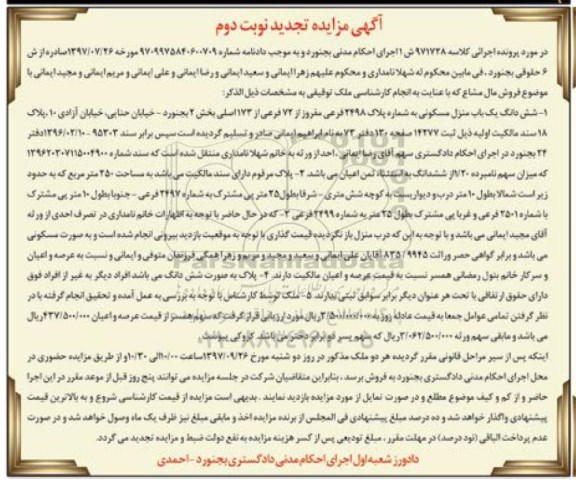 آگهی مزایده تجدید نوبت دوم
در مورد پرونده اجرائی کلاسه 971728 ش 1 اجرای احکام مدنی بجنورد و به موجب دادنامه شماره 9709975840600709 مورخه 1397/07/26 صادره از ش
6 حقوقی بجنورد، فی مابین محکوم له شهلا نامداری و محکوم علیهم زهرا ایمانی و سعید ایمانی و رضا ایمانی و علی ایمانی و مریم ایمانی و مجید ایمانی با
موضوع فروش مال مشاع که با عنایت به انجام کارشناسی ملک توقیفی به مشخصات ذیل الذکر:
1- شش دانگ یک باب منزل مسکونی به شماره پلاک 2498 فرعی مفروز از 72 فرعی از 173 اصلی بخش 2 بجنورد - خیابان حنایی، خیابان آزادی 10، پلاک
18 سند مالکیت اولیه ذیل ثبت 14277 صفحه 130 دفتر 73 به نام ابراهیم ایمانی صادر و تسلیم گردیده است سپس برابر سند 95303 - 1396/02/10 دفتر
24 بجنورد در اجرای احکام دادگستری سهم آقای رضا ایمانی، احد از ورثه به خانم شهلا نامداری منتقل شده است که سند شماره
که میزان سهم نامبرده از ششدانگ به استثناء ثمن اعیان می باشد. 2- پلاک مرقوم دارای سند مالکیت می باشد به مساحت 250 متر مربع که به حدود
زیر است شمالا بطول 10 متر درب و دیواریست به کوچه شش متری - شرقا بطول 25 متر پی مشترک به شماره 2497 فرعی - جنوبا بطول 10 متر پی مشترک
با شماره 2501 فرعی و غربا پی مشترک بطول 25 متر به شماره 2499 فرعی 3- که در حال حاضر با توجه به اظهارات خانم نامداری در تصرف احدی از ورثه
آقای مجید ایمانی می باشد و با توجه به این که درب منزل باز نگردیده قیمت گذاری با توجه به موقعیت بازدید بیرونی انجام شده است و به صورت مسکونی
می باشد و برابر گواهی حصر وراثت آقایان علی ایمانی و سعید و مجید و مریم و زهرا همگی فرزندان متوفی و ایمانی و نسبت به عرصه و اعیان
و سرکار خانم بتول رمضانی همسر نسبت به قیمت عرصه و اعیان مالکیت دارند. 4- پلاک به صورت شش دانگ می باشد افراد دیگر به غیر از افراد فوق
دارای حقوق ارتفاقی یا تحت هر عنوان دیگر برابر سوابق ثبتی ندارند. 5- ملک توسط کارشناس با توجه به بررسی به عمل آمده و تحقیق انجام گرفته با در
نظر گرفتن تمامی عوامل جمعا به قیمت عادله روز به 3/500/000/000 ریال مورد ارزیابی قرار گرفت که سهم همسر از قیمت عرصه و اعیان 437/500/000 ریال
می باشد و مابقی سهم ورثه 3/062/500/000 ریال که سهم پسر دو برابر دختر می باشد. کروکی پیوست.
اینکه پس از سیر مراحل قانونی مقرر گردیده هر دو ملک مذکور در روز دو شنبه مورخ 1397/09/26 ساعت 10/00 الی 10/30 و از طریق مزایده حضوری در
محل اجرای احکام مدنی دادگستری بجنورد به فروش برسد، بنابراین متقاضیان شرکت در جلسه مزایده می توانند پنج روز قبل از موعد مقرر در این اجرا
حاضر و از کم و کیف موضوع مطلع و در صورت تمایل از مورد مزایده بازدید نمایند. بدیهی است مزایده از قیمت کارشناسی شروع و به بالاترین قیمت
پیشنهادی واگذار خواهد شد و ده درصد مبلغ پیشنهادی فی المجلس از برنده مزایده اخذ و مابقی مبلغ نیز ظرف یک ماه وصول خواهد شد و در صورت
عدم پرداخت الباقی (نود درصد) در مهلت مقرر، مبلغ تودیعی پس از کسر هزینه مزایده به نفع دولت ضبط و مزایده تجدید می گردد.
دادورز شعبه اول اجرای احکام مدنی دادگستری بجنورد - احمدی